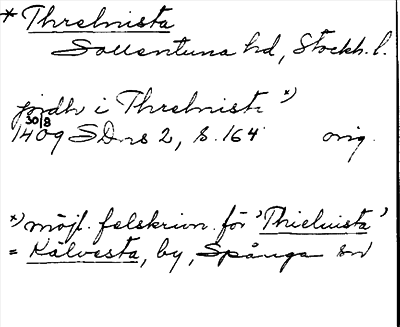 * Threlnista
Sollentuna hd, Stockh. l.
jordh i Threlniste *)
30/8
1409 SDns 2, s. 164 orig.
*) möjl. felskrivn. för 'Thieluista'
= Kälvesta, by, Spånga sn